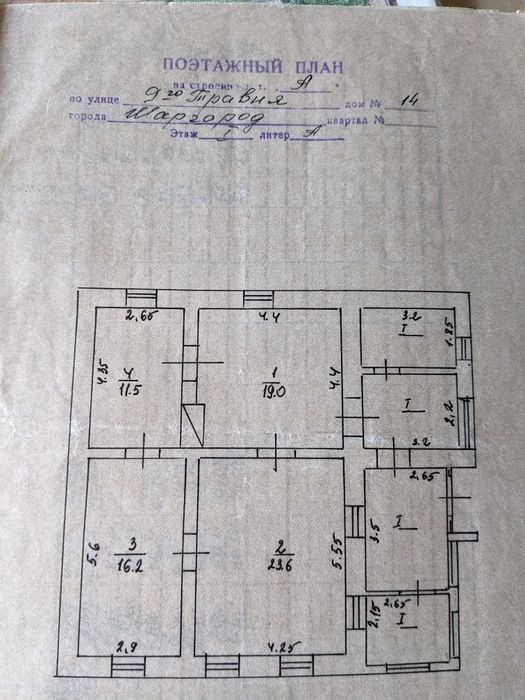 ПОЭТАЖНЫЙ ПЛАН
на строение лит. А
по улице 9го Травня дом № 14
города Шаргород квартал №
Этаж I литер А
2,65
4.4
3.2
I
1.85
4.35
4
11.5
1
19.0
4.4
I
2,2
3.2
2,65
5.6
3
16.2
2
23.6
5.55
3.5
I
2,15
2,65
I
2,9
4.25